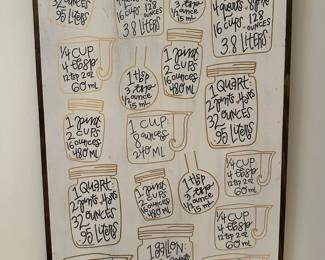 32 ounces
.95 liters
16 cups 128
ounces
3.8 liters
1 pint
2 cups
16 ounces
480 mL
4 quarts
16 cups 128
ounces
3.8 liters
1/4 cup
4 tbsp
12 tsp 2 oz
60 mL
1 tbsp
3 tsp
1/2 ounce
15 mL
1 pint
2 cups
16 ounces
480 mL
1 quart:
2 pints 4 cups
32 ounces
.95 liters
1 pint
2 cups
16 ounces
480 mL
1 cup
8 ounces
240 mL
1 quart:
2 pints 4 cups
32
ounces
.95 liters
1 pint
2 cups
16 ounces
480 mL
1 tbsp
3 tsp
1/2 ounce
15 mL
1/4 cup
4 tbsp
12 tsp 2 oz
60 mL
1/4 cup
4 tbsp
12 tsp 2 oz
60 mL
1 gallon: